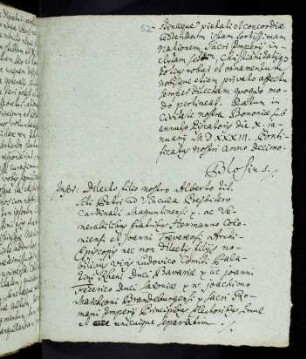 pietati et concordiae
istam fortissimam
Nationem Sacri Imperii in
robur et ornamentum
etiam privato affectu
semper dilectam quoquo
modo pertineat. Datum in
Civitate nostra Bononiae sub
annulo Piscatoris die X.
MDXXXIII. Ponti-
ficatus nostri anno decimo.
Blosius.
Dilecto filio nostro Alberto tit.
Sti Petri ad Vincula Presbitero
Cardinali Maguntinensi &. ac Ve-
nerabilibus fratribus Hermanno Colo-
niensi et Joanni Treverensi Archi-
Episcopis nec non Dilectis filiis no-
bilibus viris Ludovico Comiti Pala-
tino Rheni Duci Bavariae &. ac Joanni
Federico Duci Saxoniae &. ac Joachimo
Marchioni Brandeburgensi &. Sacri Ro-
mani Imperii Principibus Electoribus simul
et unicuique separatim.